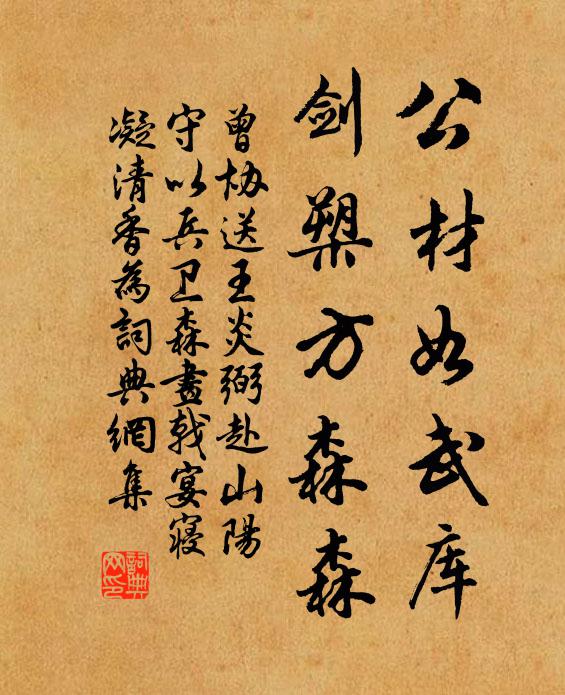 公材如武库
剑槊方森森
曾协送王炎弼赴山陽
守以兵卫森畫戟宴寝
凝清香為詞典網集
詞典网印